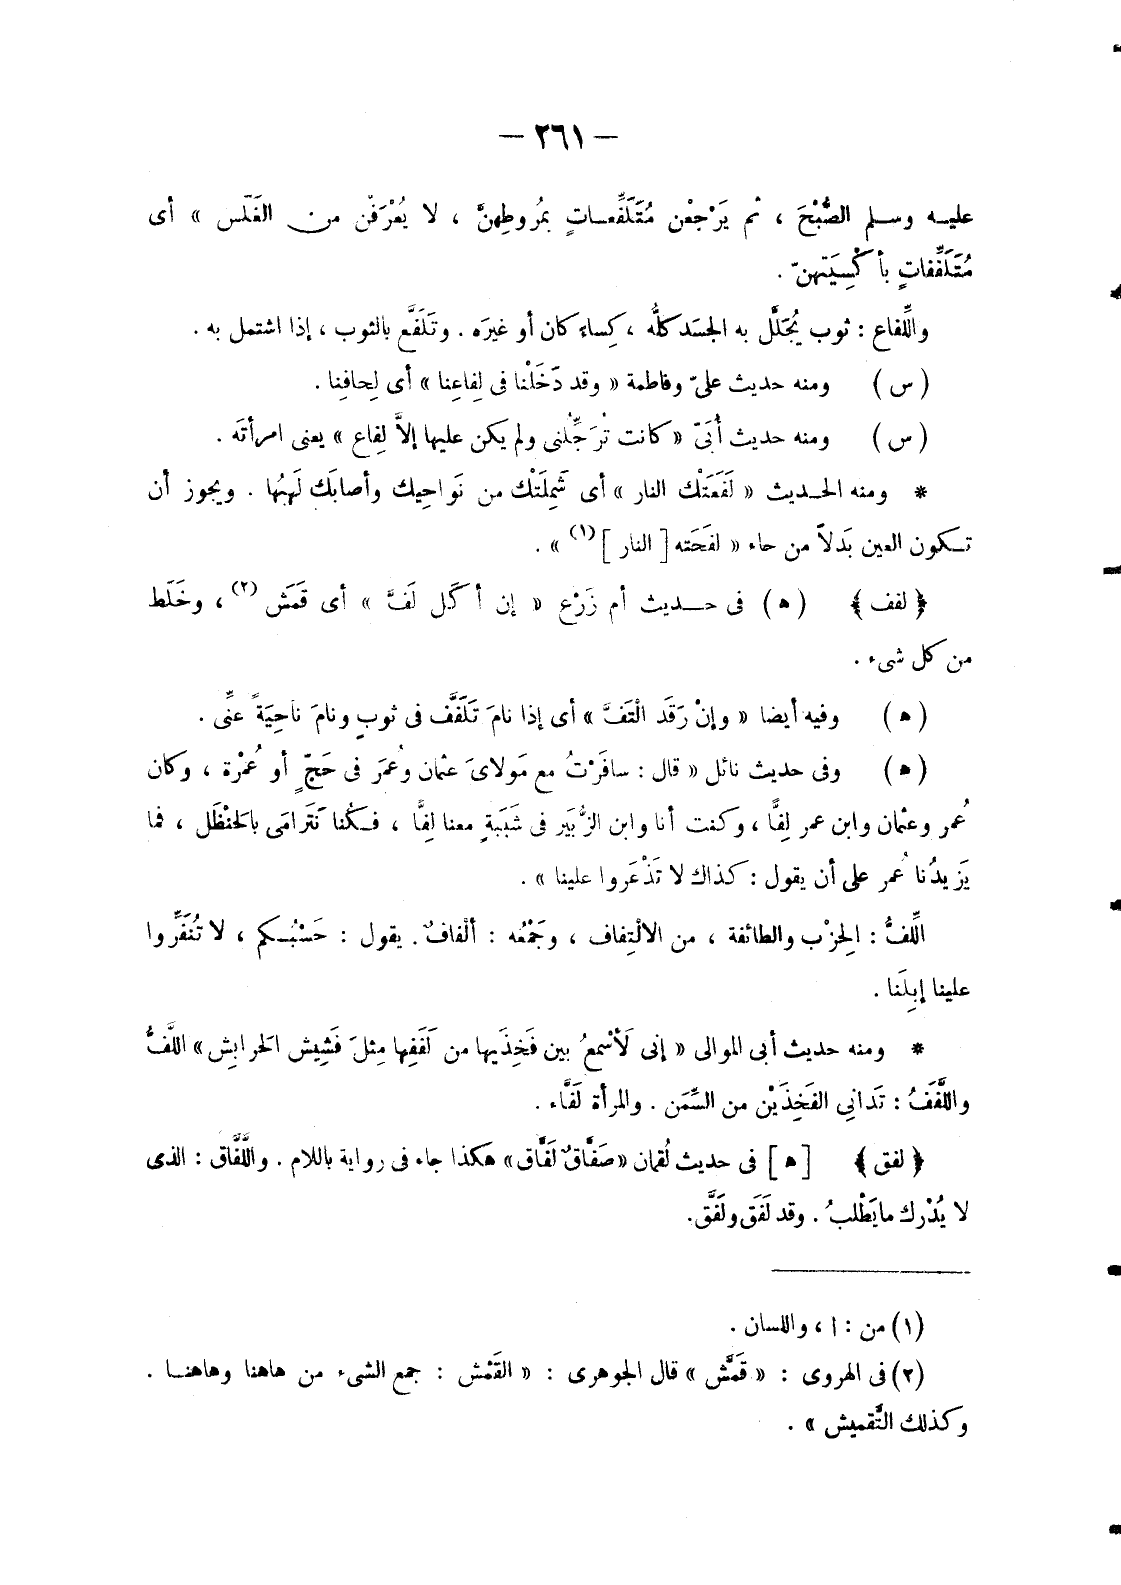 — ٢٦١ —
عليه وسلم الصُّبْحَ ، ثم يَرْجعْن مُتَلَفِّعاتٍ بمُروطِهنَّ ، لا يُعْرَفْن من الغَلَس » أى
مُتَلَفِّفاتٍ بأكْسِيَتِهنّ .
واللِّفاع : ثوب يُجَلَّل به الجسَد كلُّه ، كِساءً كان أو غيرَه . وتَلَفَّع بالثوب ، إذا اشتمل به .
( س ) ومنه حديث علىّ وفاطمة « وقد دَخَلْنا فى لِفاعِنا » أى لِحافِنا .
( س ) ومنه حديث أُبَىّ « كانت تُرَجِّلُنى ولم يكن عليها إلاَّ لِفاع » يعنى امرأتَه .
* ومنه الحديث « لَفَعَتْك النار » أى شَمِلَتْك من نَواحِيك وأصابَك لَهبُها . ويجوز أن
تكون العين بَدلاً من حاء « لفَحَته [ النار ] (١) » .
﴿ لفف ﴾ ( ه ) فى حديث أم زَرْع « إن أكَل لَفَّ » أى قَمَش (٢) ، وخَلَط
من كل شىء .
( ه ) وفيه أيضا « وإنْ رَقَد الْتَفَّ » أى إذا نامَ تَلَفَّف فى ثوبٍ ونامَ ناحِيَةً عنِّى .
( ه ) وفى حديث نائل « قال : سافَرْتُ مع مَولاىَ عثمان وعُمَرَ فى حَجٍّ أو عُمْرة ، وكان
عُمر وعثمان وابن عمر لِفًّا ، وكنت أنا وابن الزُّبَير فى شَبَبةٍ معنا لِفًّا ، فكُنا نَتَرامَى بالحَنْظَل ، فما
يَزيدُنا عُمر على أن يقول : كذاك لا تَذْعَروا علينا » .
اللِّفُّ : الحِزْب والطائفة ، من الالْتِفاف ، وجَمْعُه : ألْفافٌ . يقول : حَسْبُكم ، لا تُنَفِّروا
علينا إبِلَنا .
* ومنه حديث أبى الموالى « إنى لَأسْمعُ بين فَخِذَيها من لَفَفِها مِثلَ فَشِيش الحَرابِش » اللَّفُّ
واللَّفَفُ : تَدانِى الفَخِذَيْن من السِّمَن . والمرأة لَفَّاء .
﴿ لفق ﴾ [ ه ] فى حديث لُقمان « صَفَّاقٌ لَفَّاق » هكذا جاء فى رواية باللام . واللَّفَّاق : الذى
لا يُدْرك ما يَطْلبُ . وقد لَفَق ولَفَّق.
(١) من : ا ، واللسان .
(٢) فى الهروى : « قَمَّش » قال الجوهرى : « القَمْش : جمع الشىء من هاهنا وهاهنا .
وكذلك التَّقميش » .